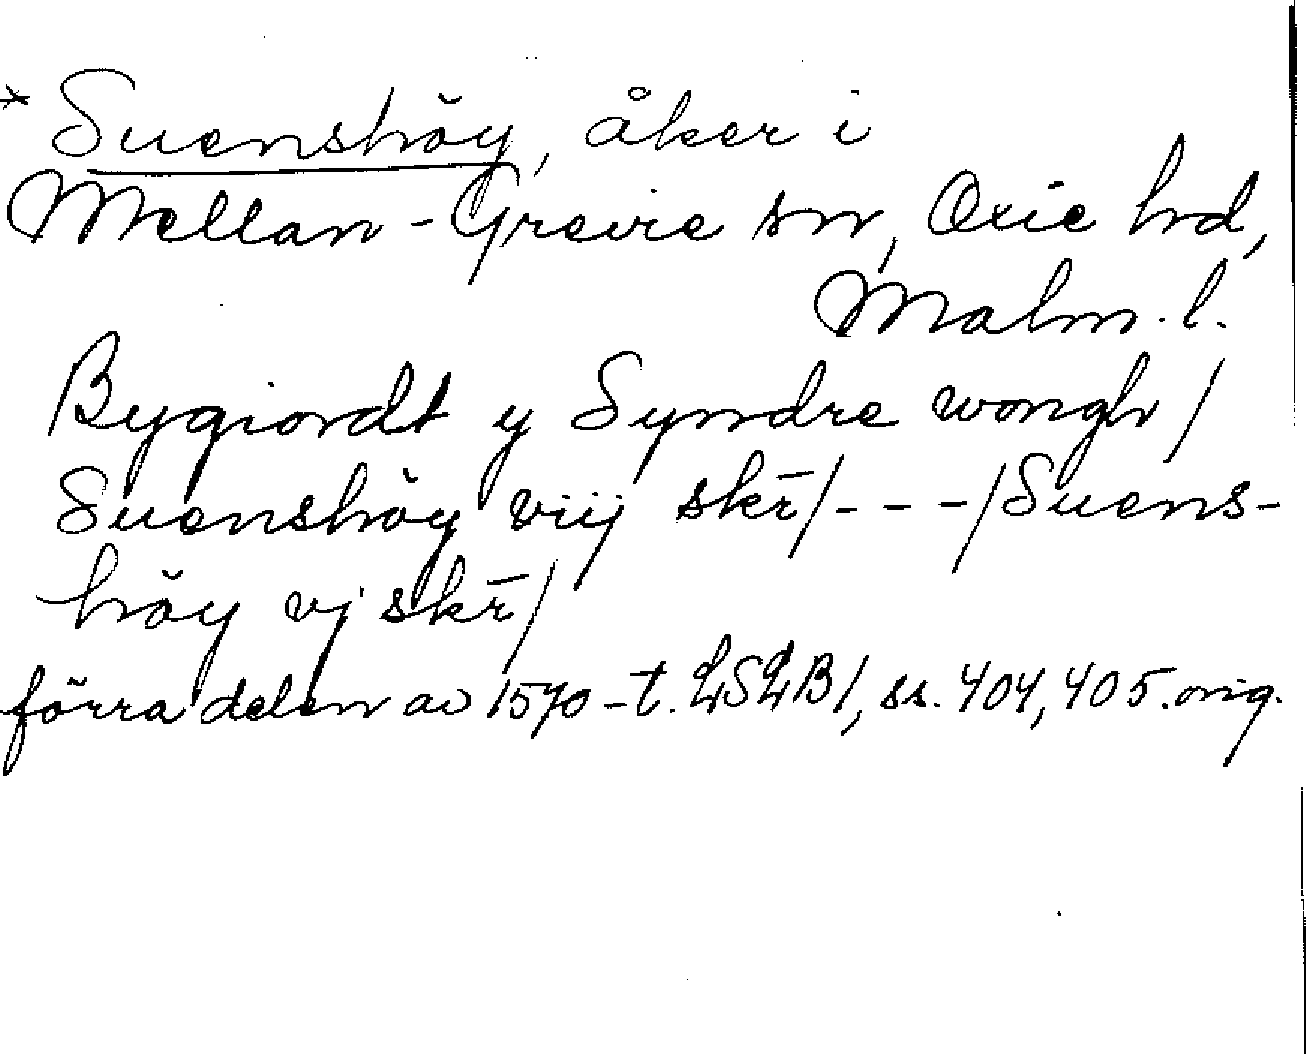 * Suenshöy, åker i
Mellan-Grevie sn, Oxie hd,
Malm. l.
Bygiordt y Syndre wongh/
Suenshöy viij skr̄/---/Suens-
höy vj skr̄/
förra delen av 1570-t. LSLB1, ss. 404, 405. orig.